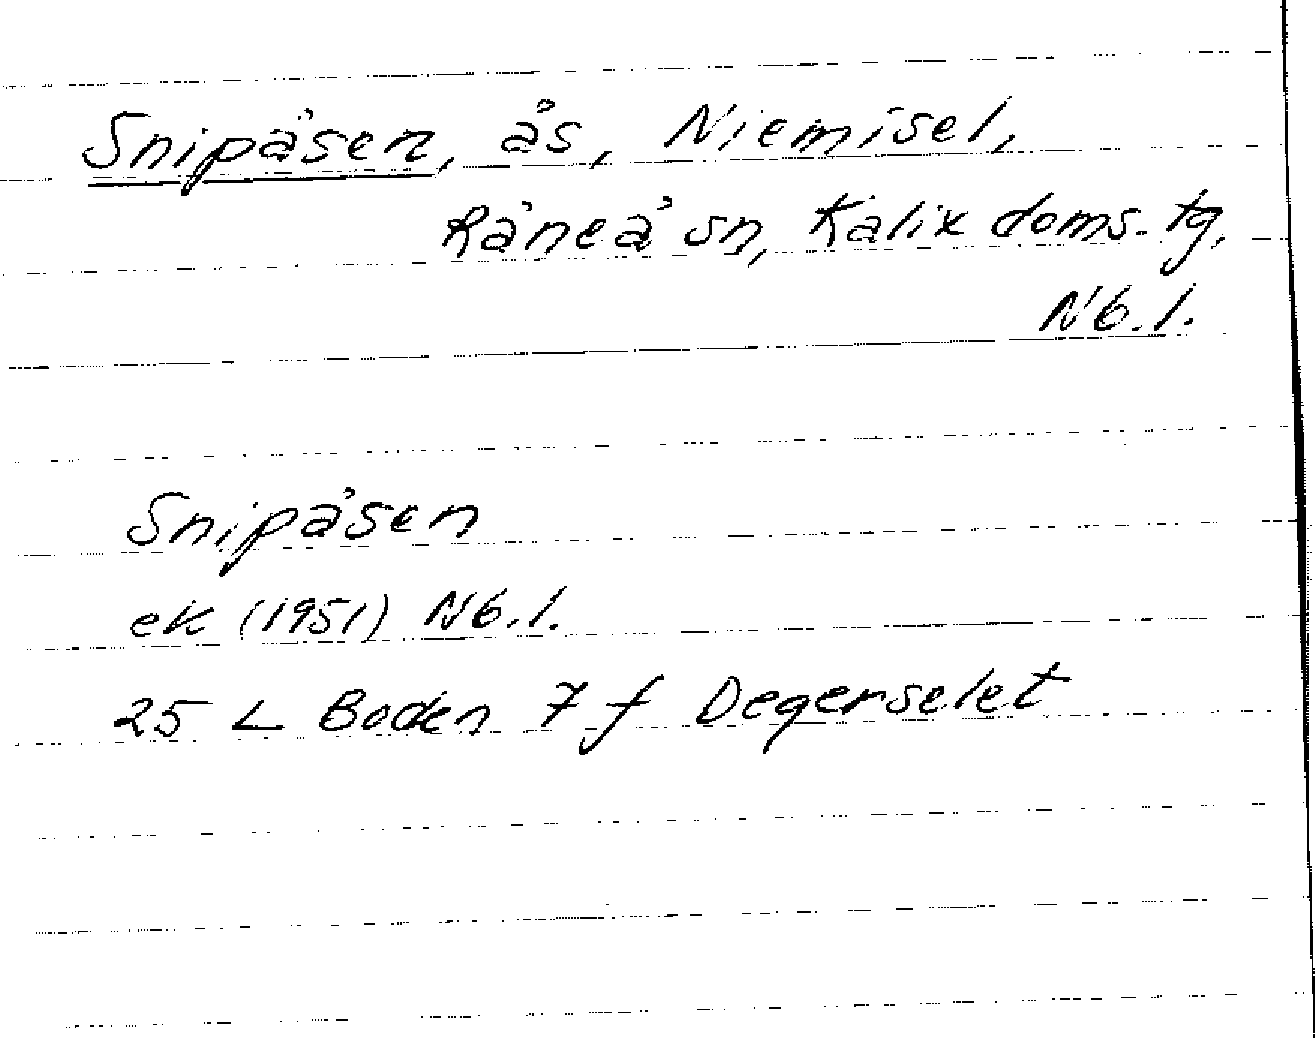 Snipåsen, ås, Niemisel,
Råneå sn, Kalix doms. tg,
Nb. l.
Snipåsen
ek (1951) Nb. l.
25 L Boden 7 f Degerselet